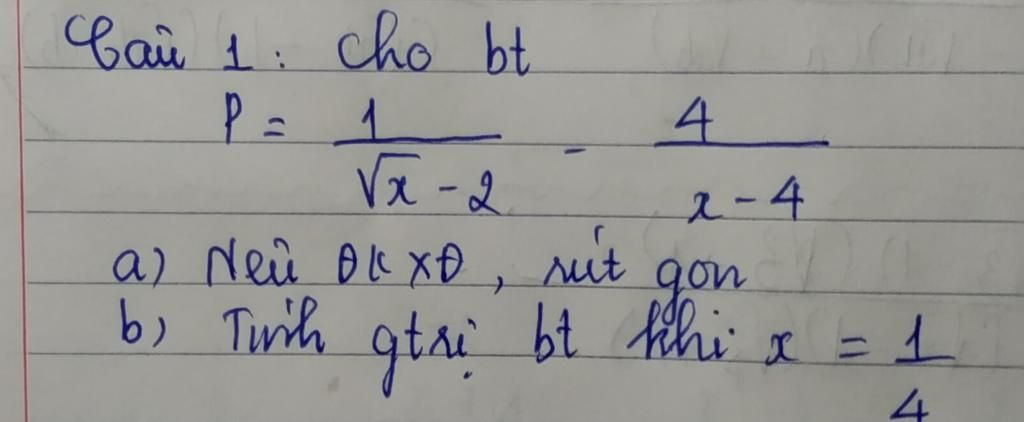 Câu 1: Cho bt
P = 1/(√x - 2) - 4/(x - 4)
a) Nêu ĐKXĐ, rút gọn
b) Tính gtrị bt khi x = 1/4